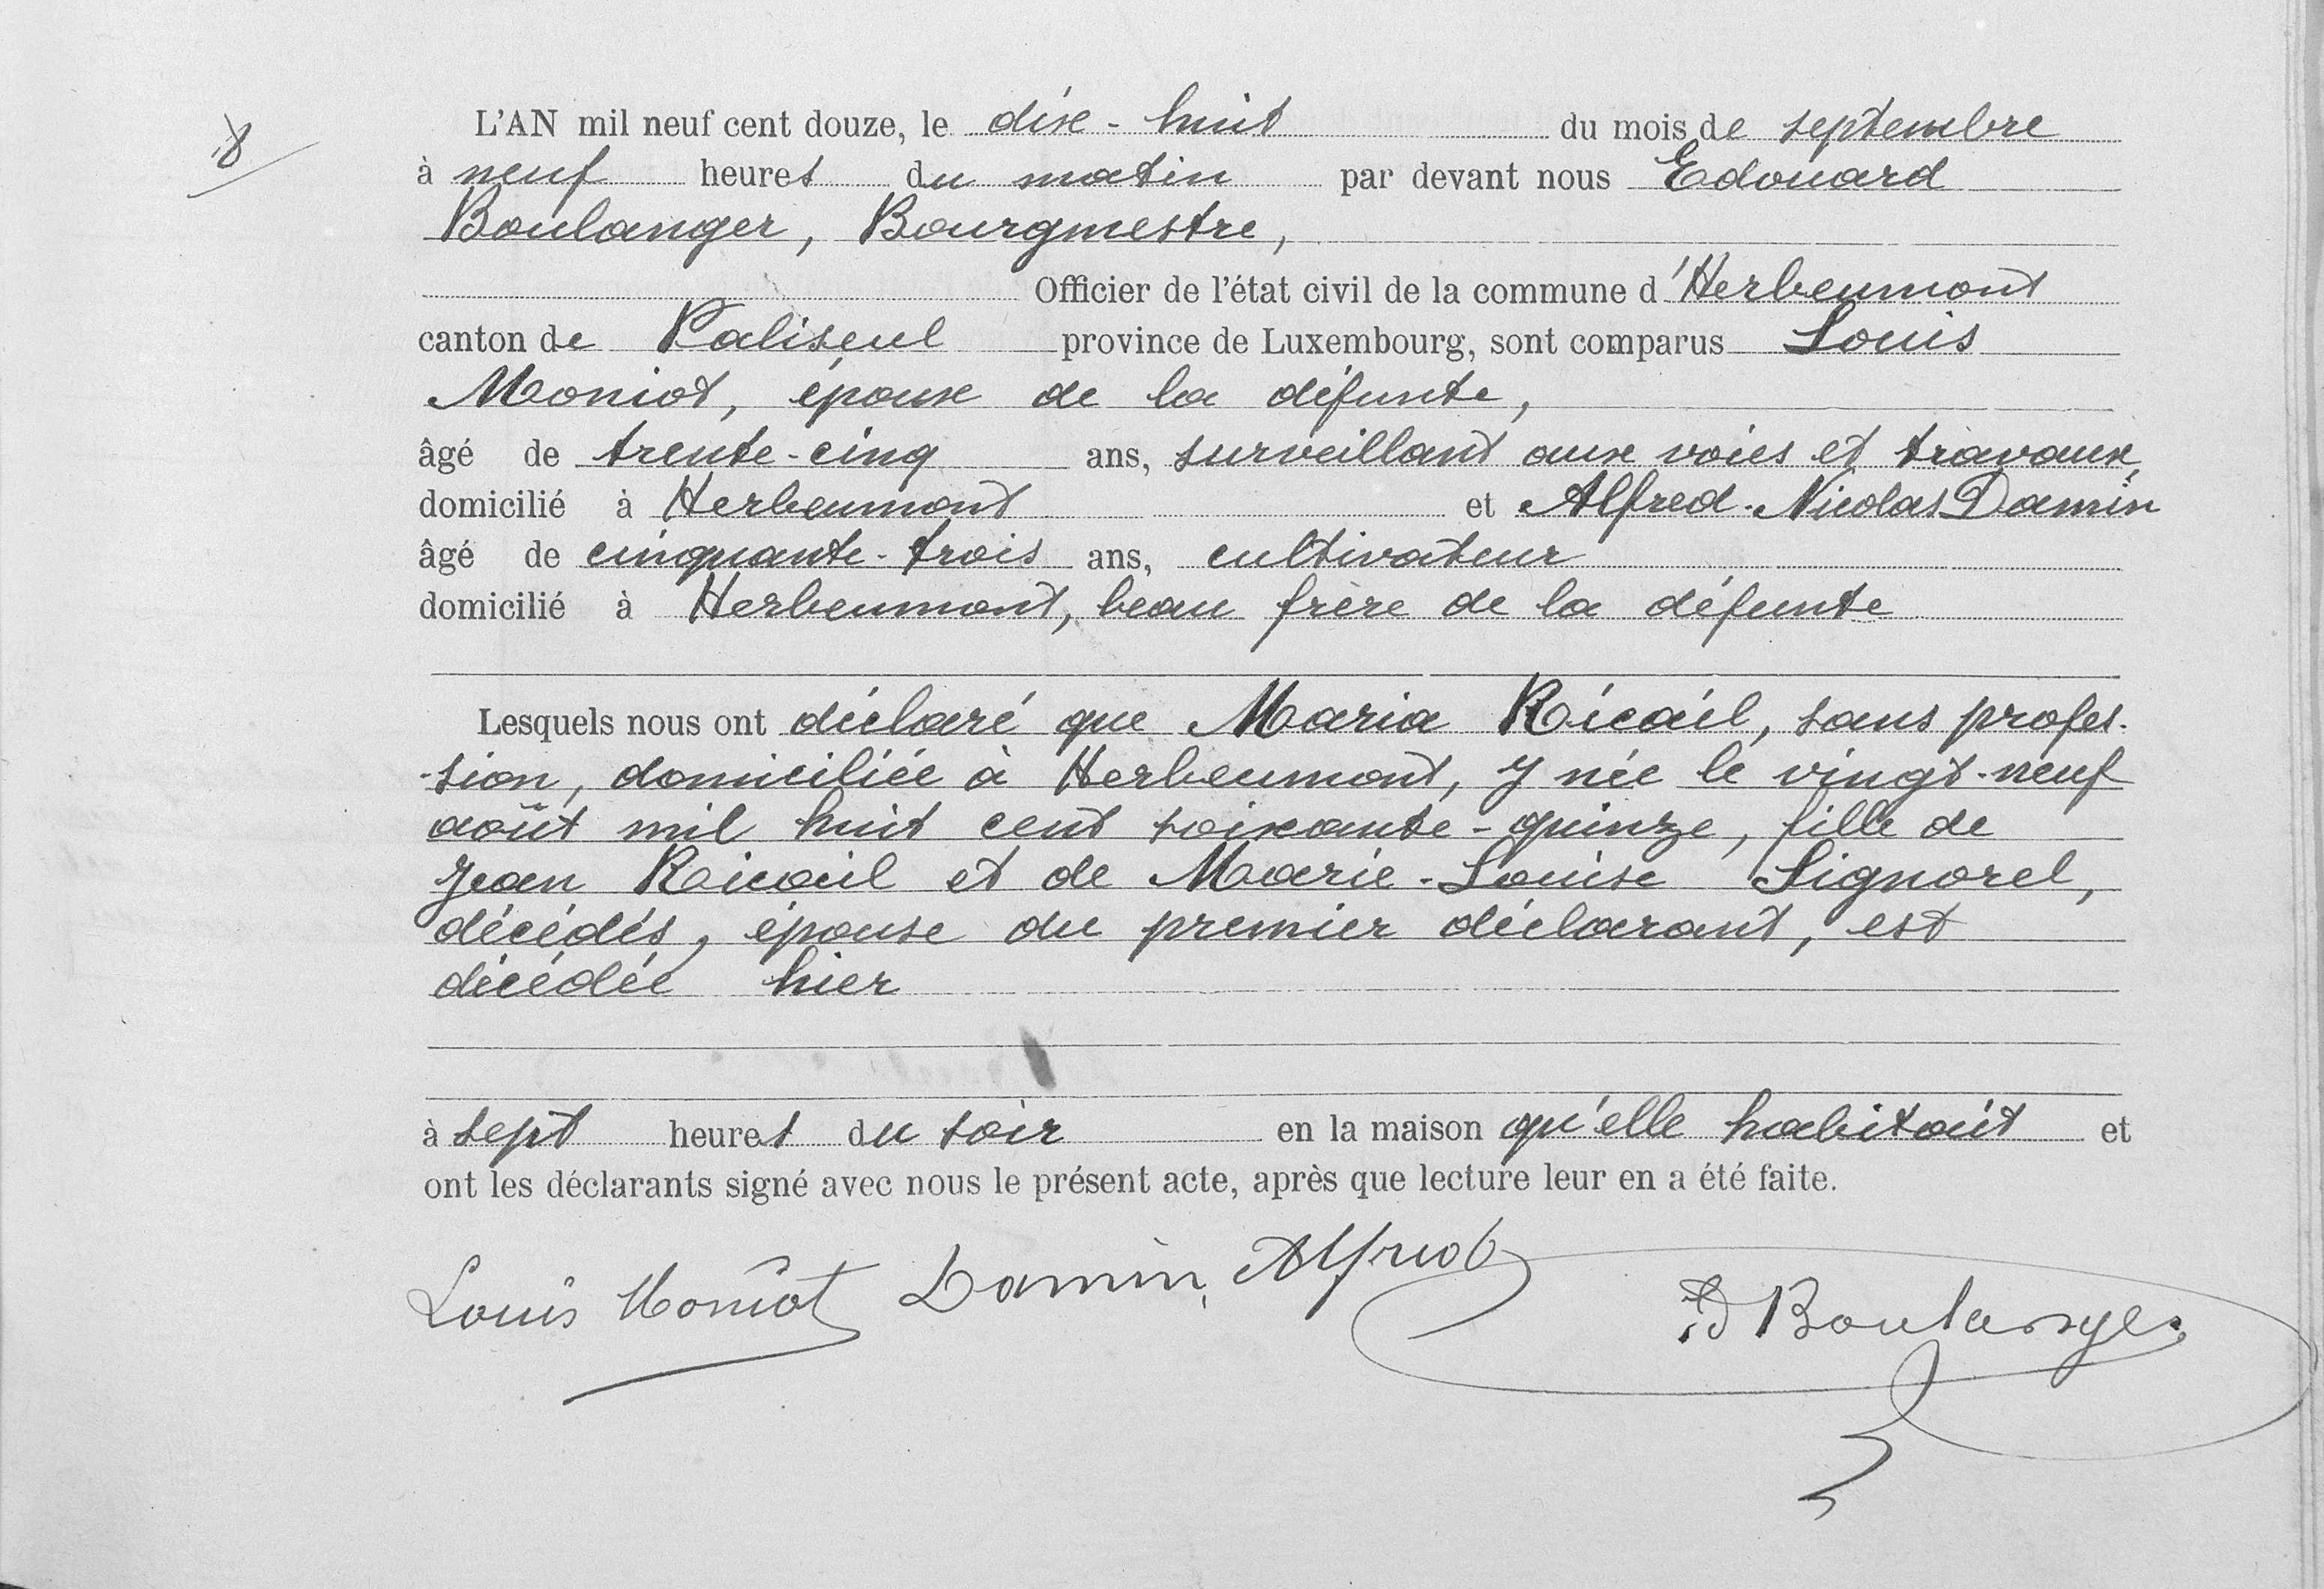 8
L'AN mil neuf cent douze, le dix-huit du mois de septembre
à neuf heures du matin par devant nous Edouard
Boulanger, Bourgmestre,
Officier de l'état civil de la commune d'Herbeumont
canton de Paliseul province de Luxembourg, sont comparus Louis
Moniot, époux de la défunte,
âgé de trente-cinq ans, surveillant aux voies et travaux,
domicilié à Herbeumont et Alfred-Nicolas Damin
âgé de cinquante-trois ans, cultivateur
domicilié à Herbeumont, beau frère de la défunte
Lesquels nous ont déclaré que Maria Ricail, sans profes-
-sion, domiciliée à Herbeumont, y née le vingt-neuf
août mil huit cent soixante-quinze, fille de
Jean Ricail et de Marie-Louise Signorel,
décédés, épouse du premier déclarant, est
décédée hier
à sept heures du soir en la maison qu'elle habitait et
ont les déclarants signé avec nous le présent acte, après que lecture leur en a été faite.
Louis Moniot Damin, Alfred Ed Boulanger